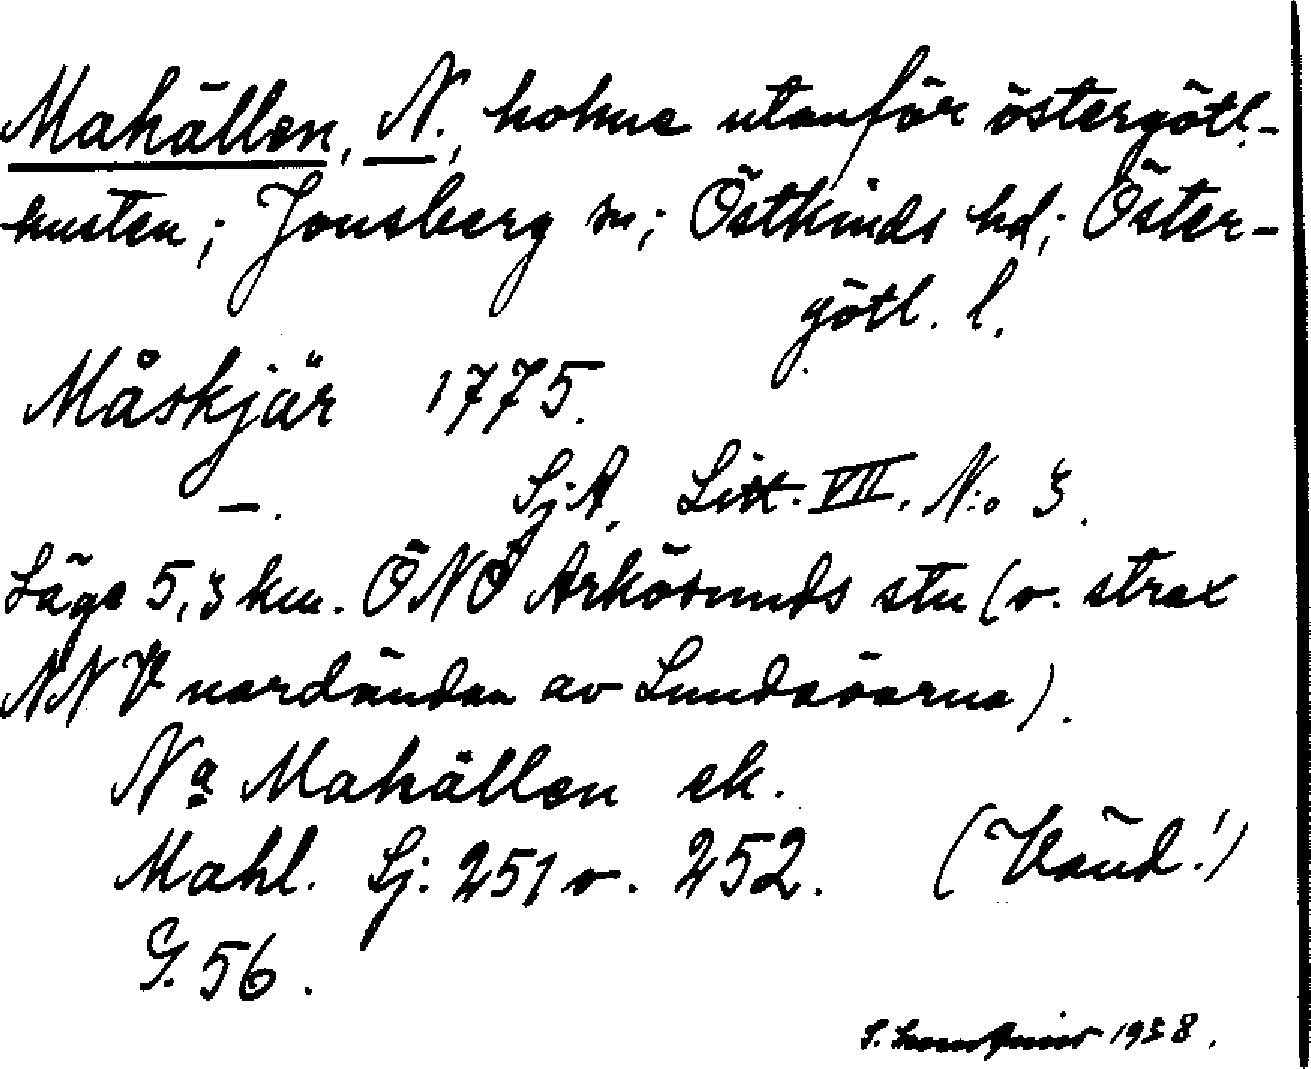 Mahällen, N., holme utanför östergötl.-
kusten; Jonsberg sn; Östkinds hd; Öster-
götl. l.
Måskjär 1775.
—. Sj.A. Litt. VII. N:o 3.
Läge 5,3 km. ÖNÖ Arkösunds stn (o. strax
NNV nordändan av Lundaöarna).
Na Mahällen ek.
Mahl. Sj. 251 o. 252. (Vänd!)
G. 56.
1938.